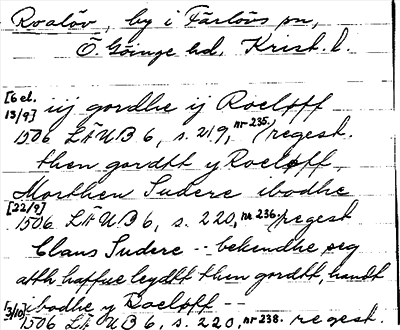 Roalöv, by i Färlövs sn,
Ö. Göinge hd, Krist. l.
[6 el. 13/9] iij gordhe ij Roeloff
1506 LÄUB 6, s. 219, nr 235. regest.
then gordtt y Roeloff
Morthen Sudere ibodhe
[22/9] 1506 LÄUB 6, s. 220, nr 236. regest
Claus Sudere -- bekendhe seg
atth haffue leydtt then gordtt, handt
ibodhe y Roeloff --
[3/10] 1506 LÄUB 6, s. 220, nr 238. regest.